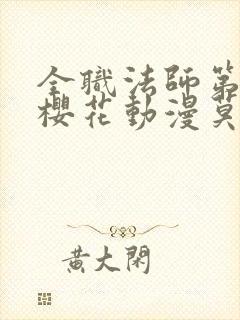 全職法師第
櫻花動漫莫
黃大閑